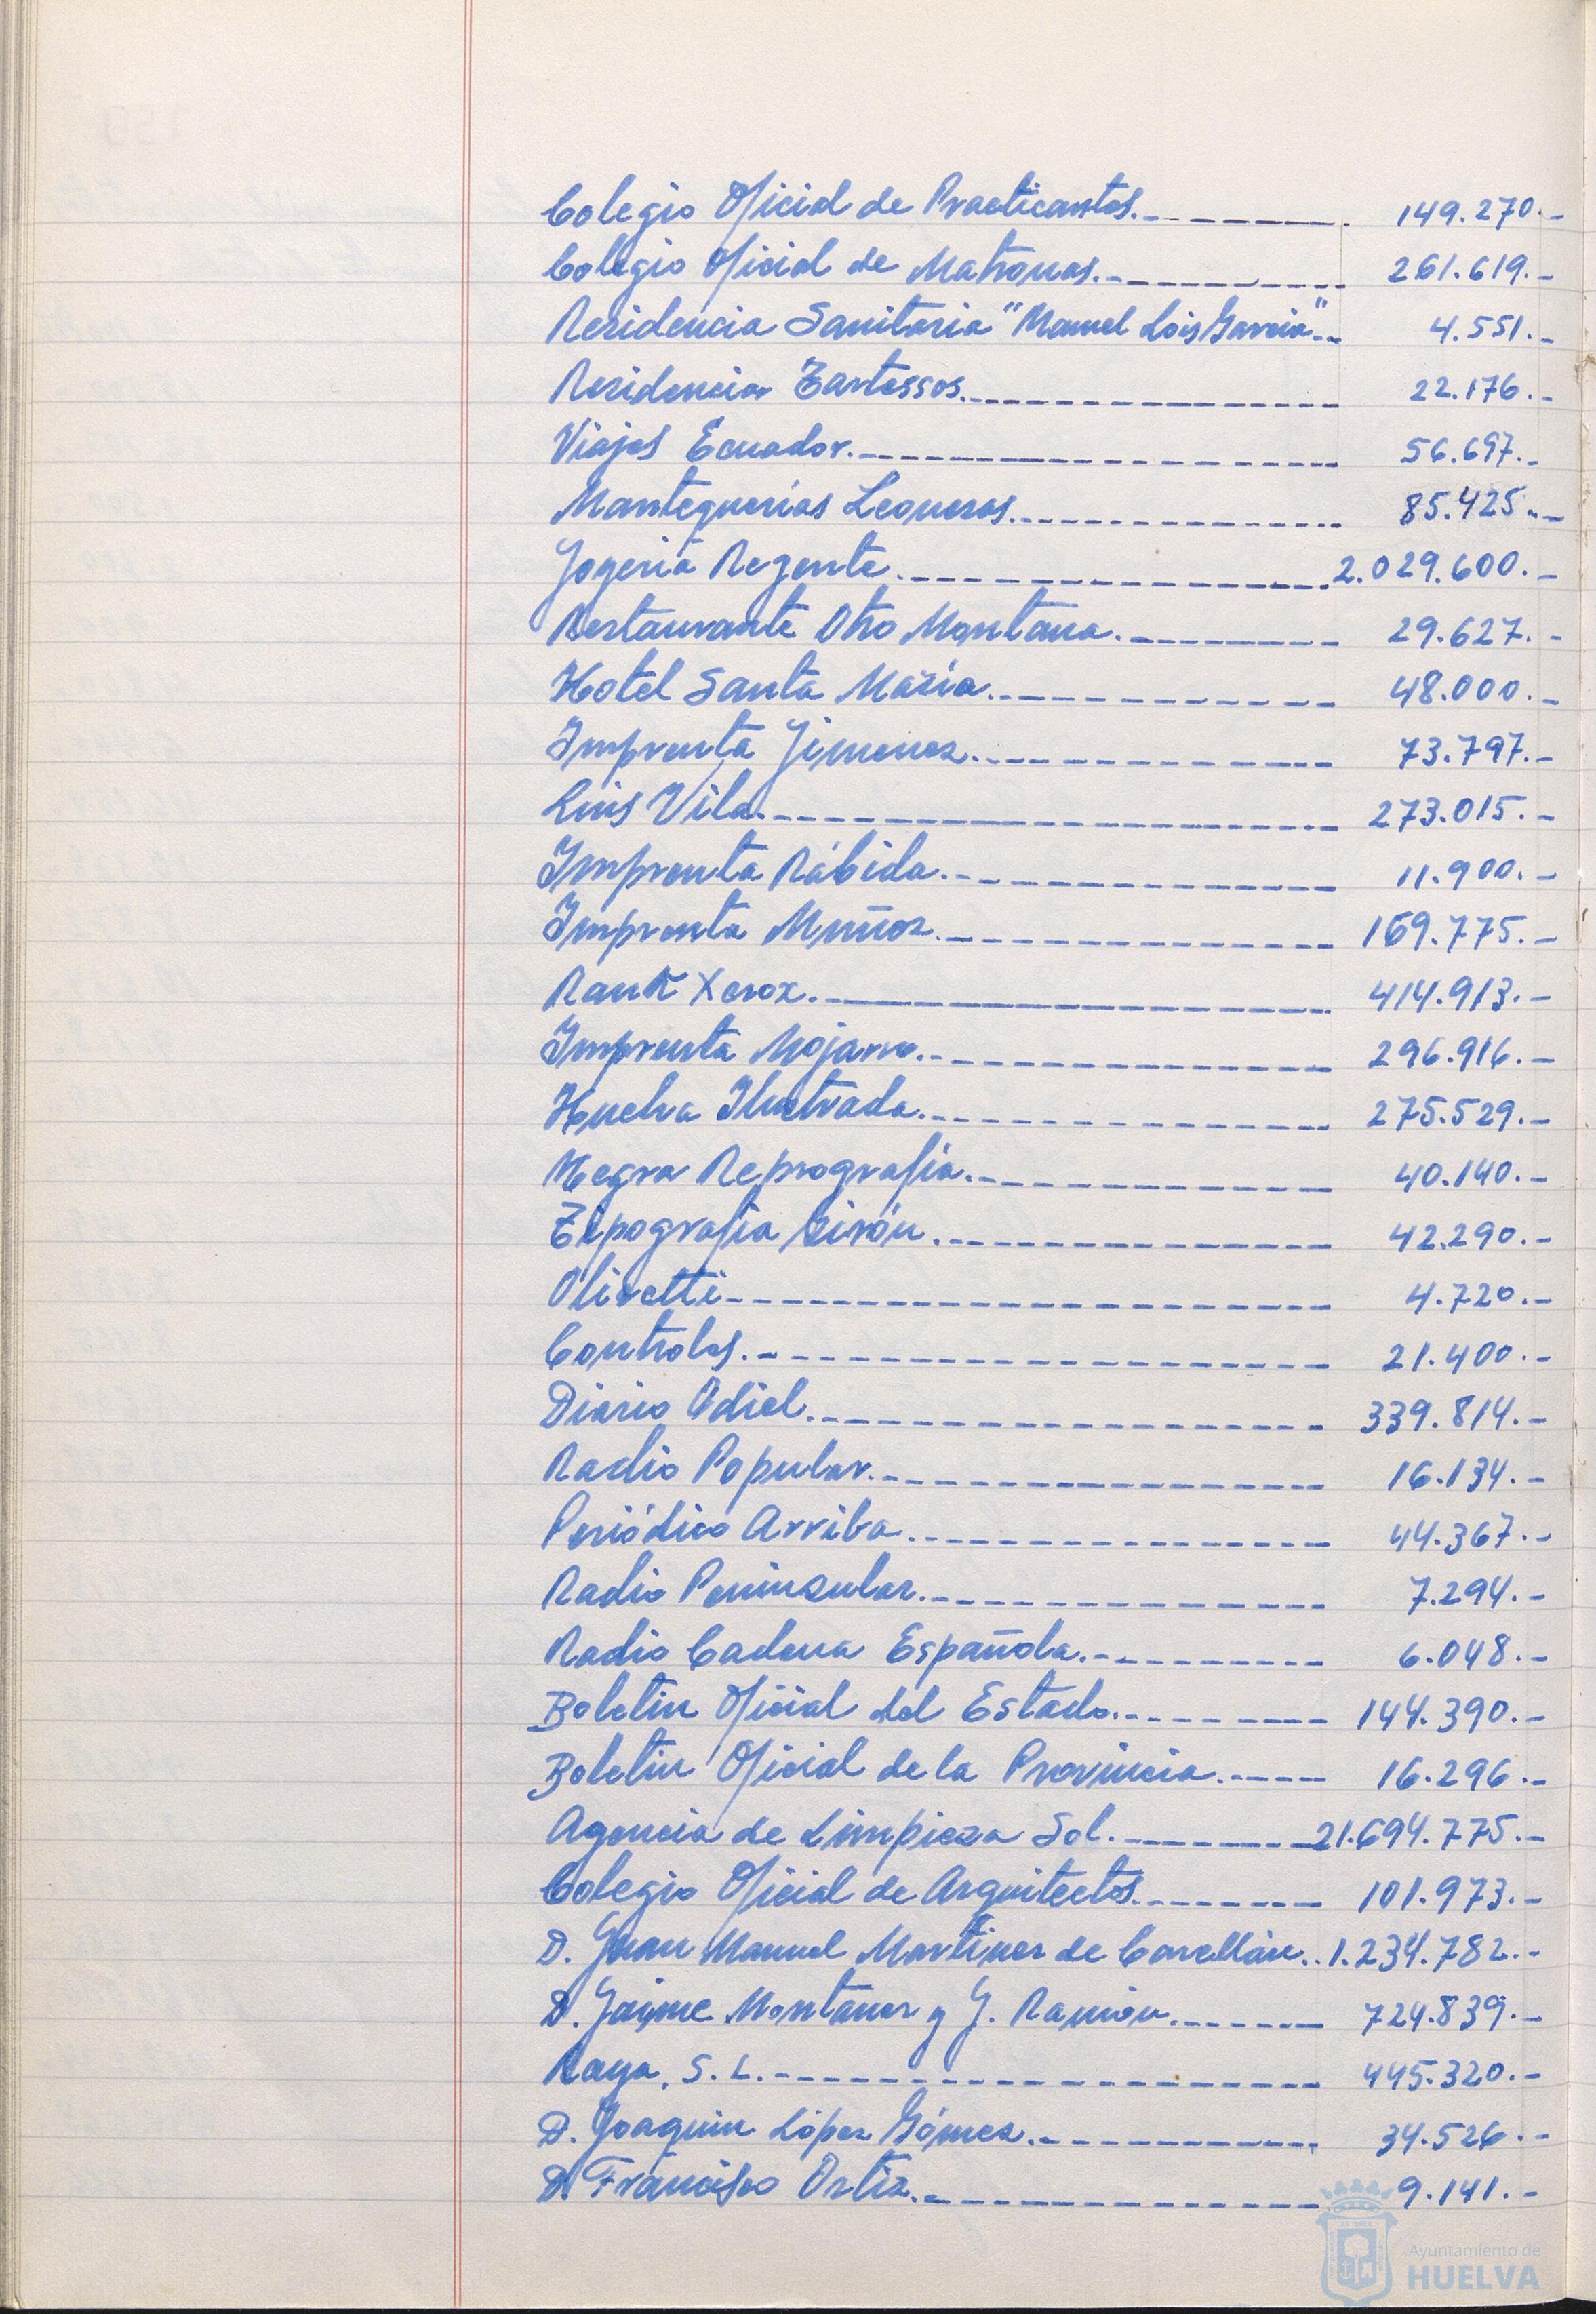 Colegio Oficial de Practicantes.--------. 149.270.-
Colegio Oficial de Matronas.---------- 261.619.-
Residencia Sanitaria "Manuel Lois García".-- 4.551.-
Residencia Tartessos.--------------- 22.176.-
Viajes Ecuador.------------------- 56.697.-
Mantequerías Leonesas.-------------- 85.425.--
Joyería Regente.----------------- 2.029.600.-
Restaurante Otto Montana.-------- 29.627.-
Hotel Santa María.------------- 48.000.-
Imprenta Jimenez.------------- 73.797.-
Luis Vila.-------------------- 273.015.-
Imprenta Rábida.-------------- 11.900.-
Imprenta Muñoz.-------------- 169.775.-
Rank Xerox.----------------- 414.913.-
Imprenta Mojarro.------------- 296.916.-
Huelva Ilustrada.------------- 275.529.-
Regra Reprografía.------------ 40.140.-
Tipografía Girón.------------- 42.290.-
Olivetti--------------------- 4.720.-
Controles.------------------- 21.400.-
Diario Odiel.---------------- 339.814.-
Radio Popular.-------------- 16.134.-
Periódico Arriba.------------- 44.367.-
Radio Peninsular.------------- 7.294.-
Radio Cadena Española.--------- 6.048.-
Boletin Oficial del Estado.------- 144.390.-
Boletin Oficial de la Provincia.---- 16.296.-
Agencia de Limpieza Sol.-------21.694.775.-
Colegio Oficial de Arquitectos.------ 101.973.-
D. Juan Manuel Martínez de Carellán..1.234.782.-
D. Jaime Montaner y G. Ramón.------ 724.839.-
Raya, S.L.------------------- 445.320.-
D. Joaquin López Gómez.---------- 34.526.-
D. Francisco Ortiz.------------- 9.141.-
Ayuntamiento de
HUELVA